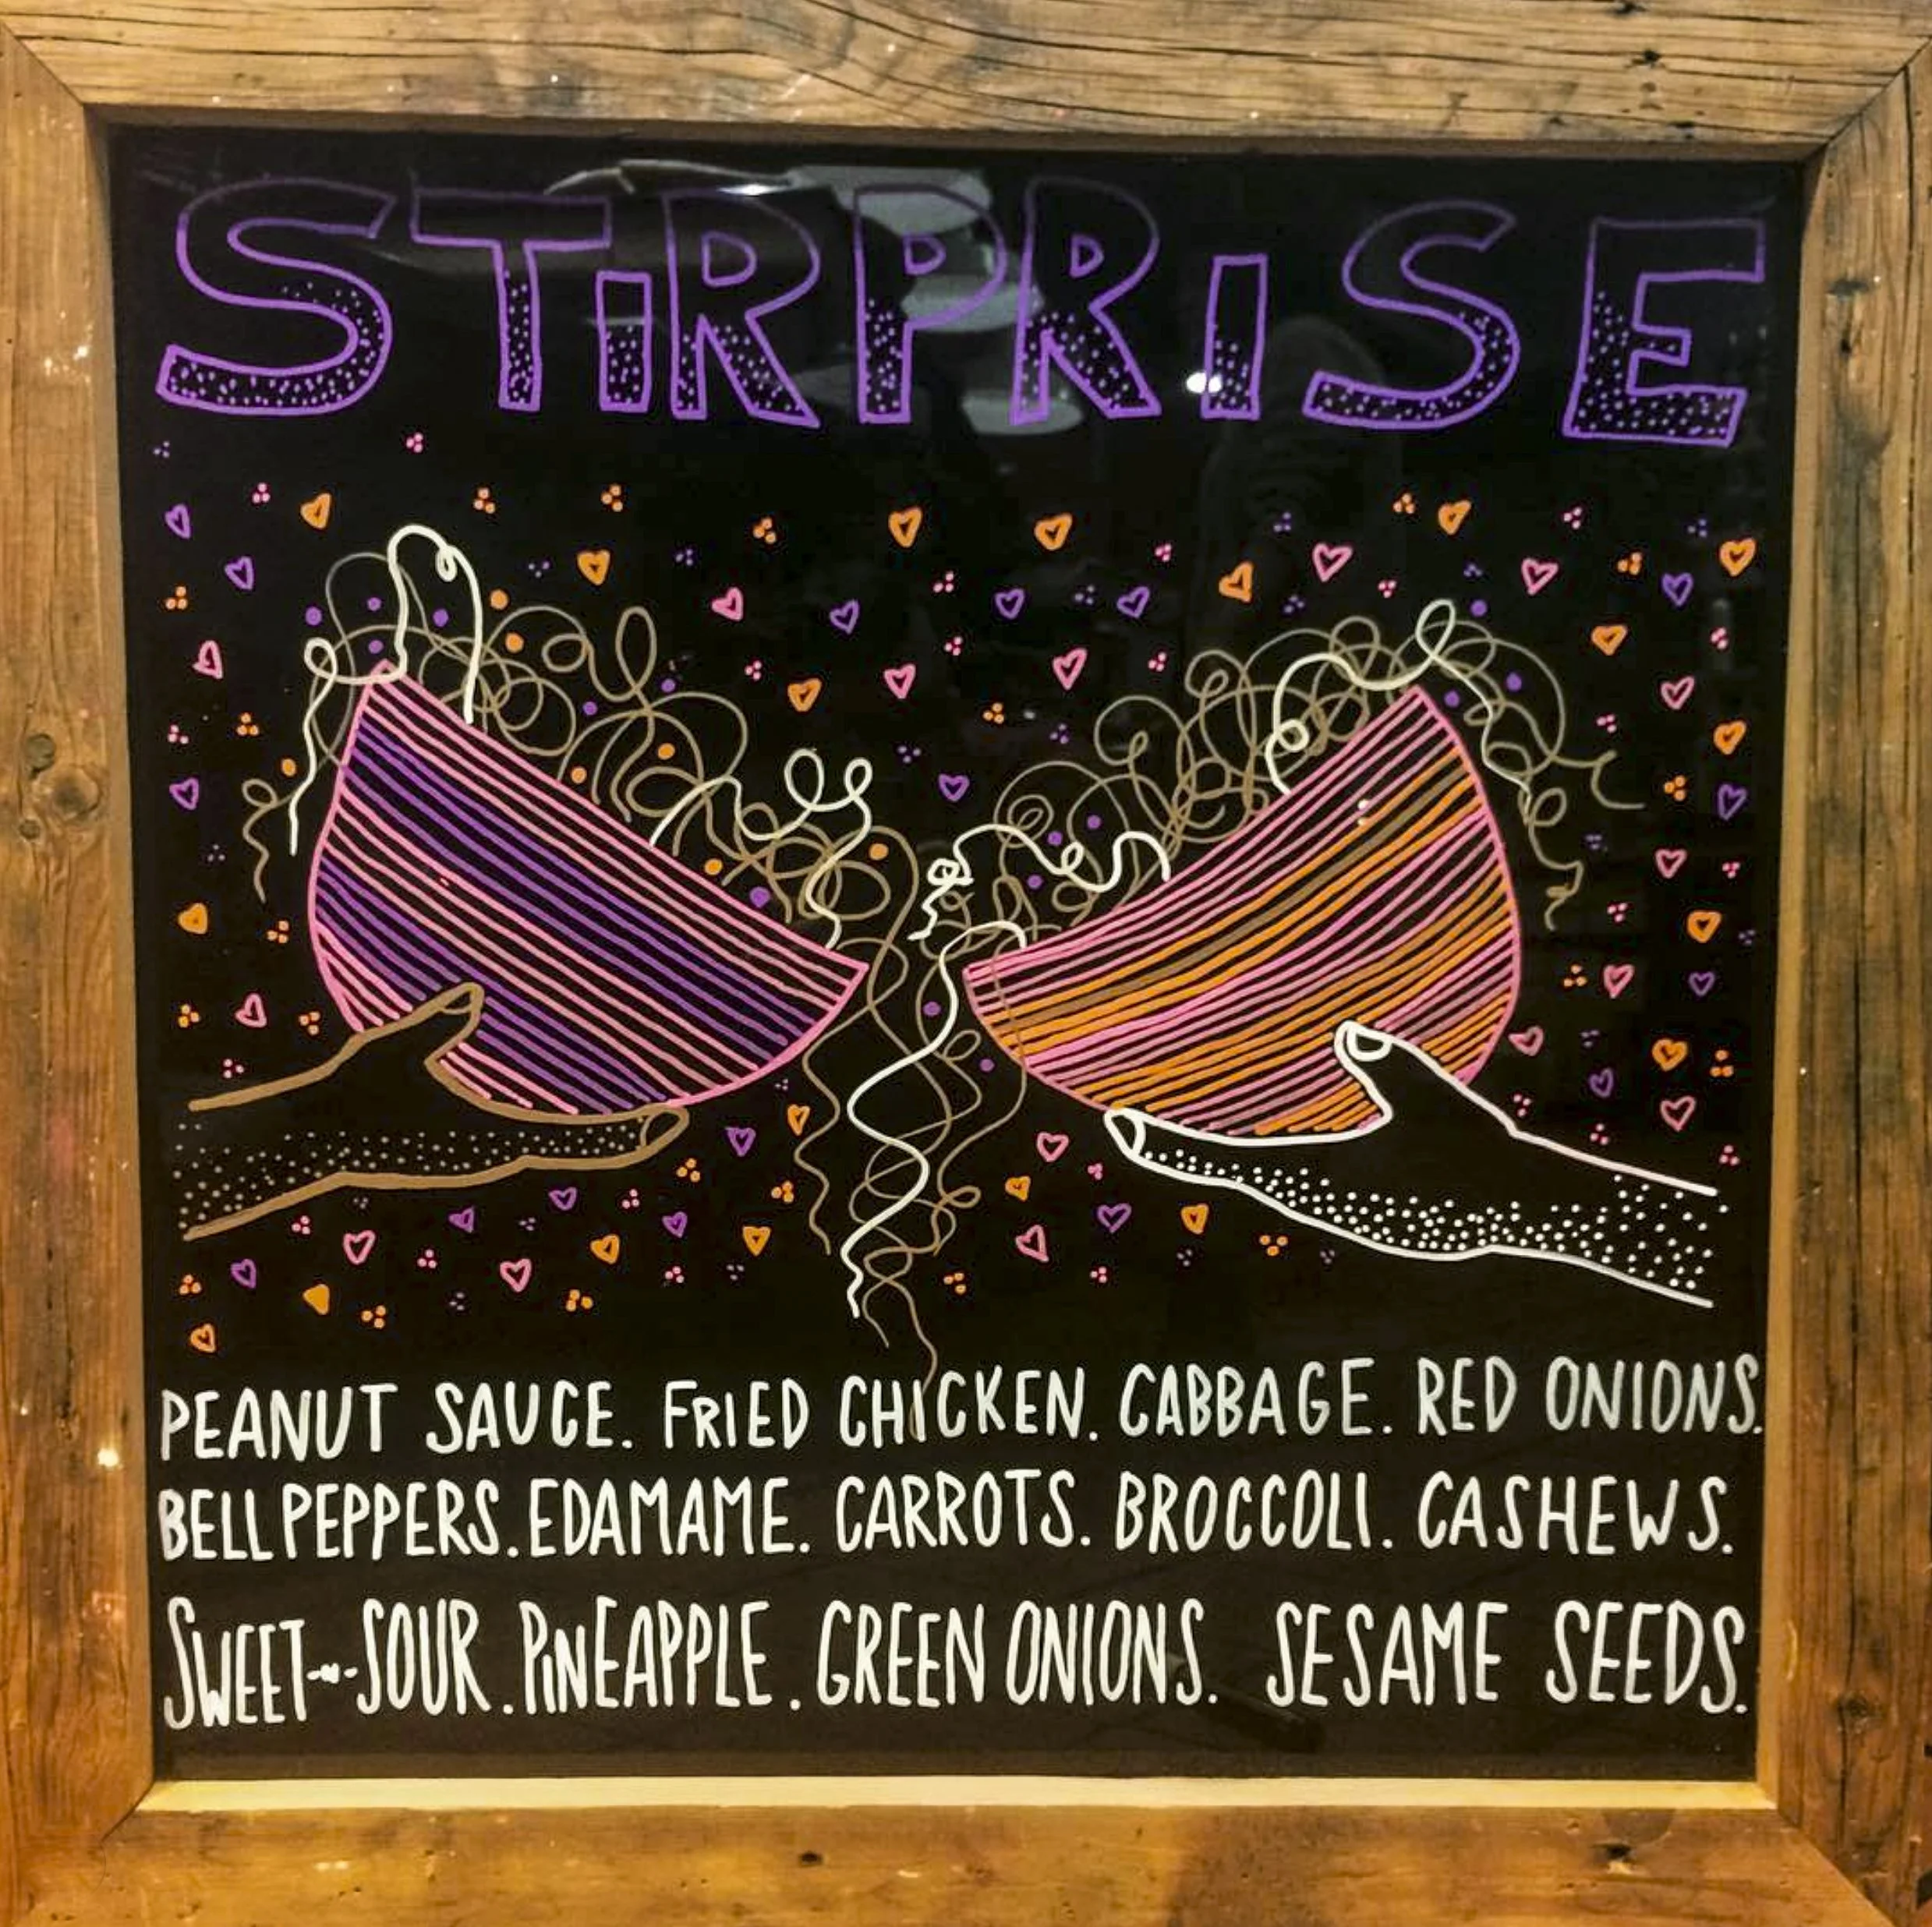 STiRPRISE
PEANUT SAUCE. FRIED CHICKEN. CABBAGE. RED ONIONS.
BELL PEPPERS. EDAMAME. CARROTS. BROCCOLI. CASHEWS.
SWEET-N-SOUR. PiNEAPPLE. GREEN ONIONS. SESAME SEEDS.